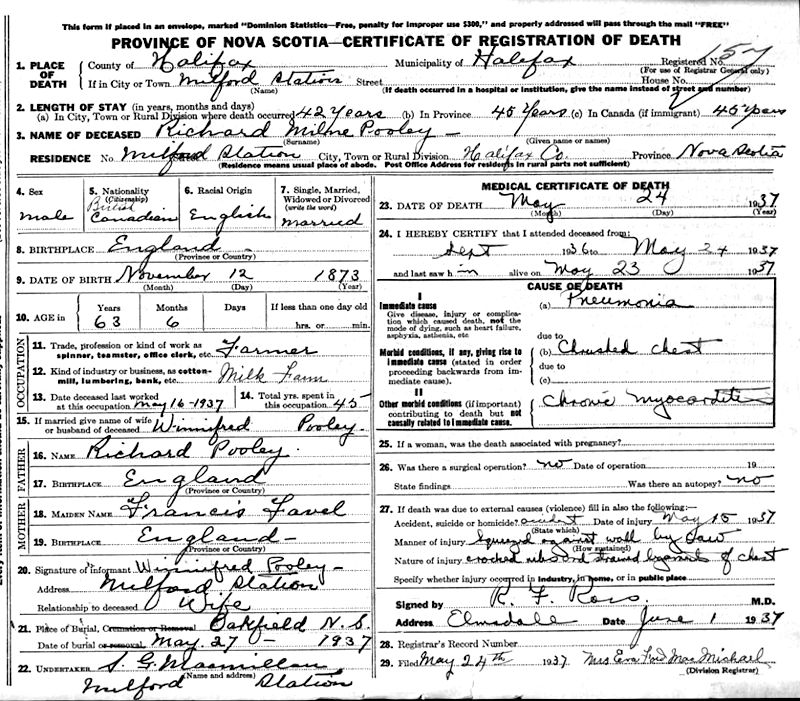 This form if placed in an envelope, marked "Dominion Statistics—Free, penalty for improper use $300," and properly addressed will pass through the mail "FREE"
PROVINCE OF NOVA SCOTIA—CERTIFICATE OF REGISTRATION OF DEATH
1. PLACE OF DEATH County of Halifax Municipality of Halifax Registered No. 157
(For use of Registrar General only)
If in City or Town Milford Station Street House No.
(Name) (If death occurred in a hospital or institution, give the name instead of street and number)
2. LENGTH OF STAY (in years, months and days)
(a) In City, Town or Rural Division where death occurred 42 Years (b) In Province 45 Years (c) In Canada (if immigrant) 45 years
3. NAME OF DECEASED Richard Milne Pooley —
(Surname) (Given name or names)
RESIDENCE No. Milford Station City, Town or Rural Division Halifax Co. Province Nova Scotia
(Residence means usual place of abode. Post Office Address for residents in rural parts not sufficient)
4. Sex male
5. Nationality (Citizenship) British Canadian
6. Racial Origin English
7. Single, Married, Widowed or Divorced (write the word) married
8. BIRTHPLACE England
(Province or Country)
9. DATE OF BIRTH November 12 1873
(Month) (Day) (Year)
10. AGE in Years 63 Months 6 Days If less than one day old hrs. or min.
OCCUPATION
11. Trade, profession or kind of work as spinner, teamster, office clerk, etc. Farmer
12. Kind of industry or business, as cotton-mill, lumbering, bank, etc. Milk Farm
13. Date deceased last worked at this occupation May 16-1937
14. Total yrs. spent in this occupation 45
15. If married give name of wife or husband of deceased Winnifred Pooley
FATHER
16. NAME Richard Pooley.
17. BIRTHPLACE England
(Province or Country)
MOTHER
18. MAIDEN NAME Francis Favel
19. BIRTHPLACE England —
(Province or Country)
20. Signature of informant Winnifred Pooley —
Address Milford Station
Relationship to deceased Wife
21. Place of Burial, Cremation or Removal Oakfield N.S.
Date of burial or removal May 27 — 1937
22. UNDERTAKER S. G. Macmillan
(Name and address)
Milford Station
MEDICAL CERTIFICATE OF DEATH
23. DATE OF DEATH May 24 1937
(Month) (Day) (Year)
24. I HEREBY CERTIFY that I attended deceased from:
Sept 1936 to May 24 1937
and last saw him alive on May 23 1937
CAUSE OF DEATH
I
Immediate cause
Give disease, injury or complication which caused death, not the mode of dying, such as heart failure, asphyxia, asthenia, etc
(a) Pneumonia
due to
Morbid conditions, if any, giving rise to immediate cause (stated in order proceeding backwards from immediate cause).
(b) Chrushed chest
due to
(c)
II
Other morbid conditions (if important) contributing to death but not causally related to immediate cause.
Chronic myocarditis
25. If a woman, was the death associated with pregnancy?
26. Was there a surgical operation? no Date of operation 19
State findings Was there an autopsy? no
27. If death was due to external causes (violence) fill in also the following:—
Accident, suicide or homicide? accident Date of injury May 15 1937
(State which)
Manner of injury Squeezed against wall by
(How sustained)
Nature of injury cracked ribs and strained ligaments of chest
Specify whether injury occurred in industry, in home, or in public place
Signed by R. F. Ross. M.D.
Address Elmsdale Date June 1 1937
28. Registrar's Record Number
29. Filed May 24th 1937 Mrs Eva Ford MacMichael
(Division Registrar)